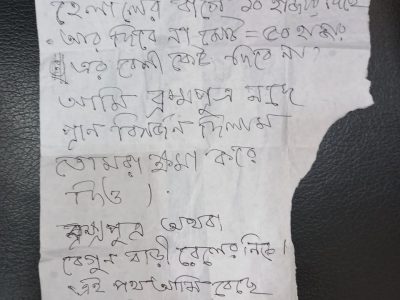 হেলালের কাছে ১০ হাজার দিছে
আর দিবে না মোট = ৫০ হাজার
এর বেশী কেউ দিবে না।
আমি ব্রম্মপুত্র নদে
প্রান বিসর্জন দিলাম
তোমরা ক্ষমা করে
দিও।
ব্রম্মপুত্র অথবা
বেগুন বাড়ী রেলের নিচে।
এই পথ আমি বেছে